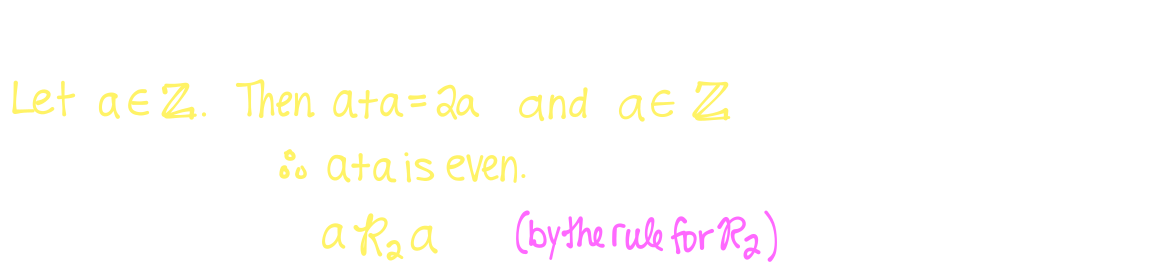 Let a ∈ ℤ. Then a+a=2a and a ∈ ℤ
∴ a+a is even.
a R₂ a (by the rule for R₂)